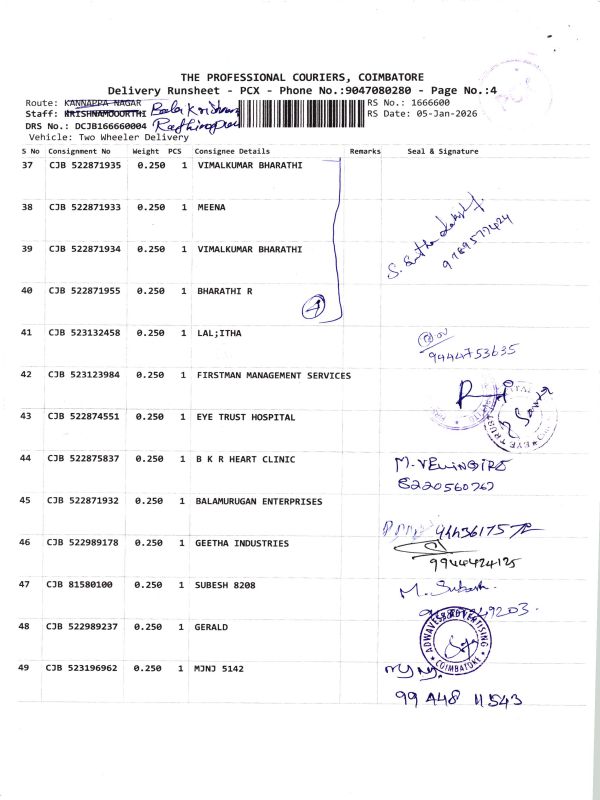 THE PROFESSIONAL COURIERS, COIMBATORE
Delivery Runsheet - PCX - Phone No.:9047080280 - Page No.:4
Route: KANNAPPA NAGAR RS No.: 1666600
Staff: KRISHNAMOORTHI Bala Krishnan RS Date: 05-Jan-2026
DRS No.: DCJB166660004
Vehicle: Two Wheeler Delivery
S No Consignment No Weight PCS Consignee Details Remarks Seal & Signature
37 CJB 522871935 0.250 1 VIMALKUMAR BHARATHI
38 CJB 522871933 0.250 1 MEENA
39 CJB 522871934 0.250 1 VIMALKUMAR BHARATHI
9789577424
40 CJB 522871955 0.250 1 BHARATHI R
4
41 CJB 523132458 0.250 1 LAL;ITHA
9444753635
42 CJB 523123984 0.250 1 FIRSTMAN MANAGEMENT SERVICES
43 CJB 522874551 0.250 1 EYE TRUST HOSPITAL
EYE TRUST
44 CJB 522875837 0.250 1 B K R HEART CLINIC
M. VELINGIRE
8220560767
45 CJB 522871932 0.250 1 BALAMURUGAN ENTERPRISES
46 CJB 522989178 0.250 1 GEETHA INDUSTRIES
9944424125
47 CJB 81580100 0.250 1 SUBESH 8208
M. Subesh.
48 CJB 522989237 0.250 1 GERALD
ADWAVES ADVERTISING
COIMBATORE
49 CJB 523196962 0.250 1 MJNJ 5142
99 448 11543